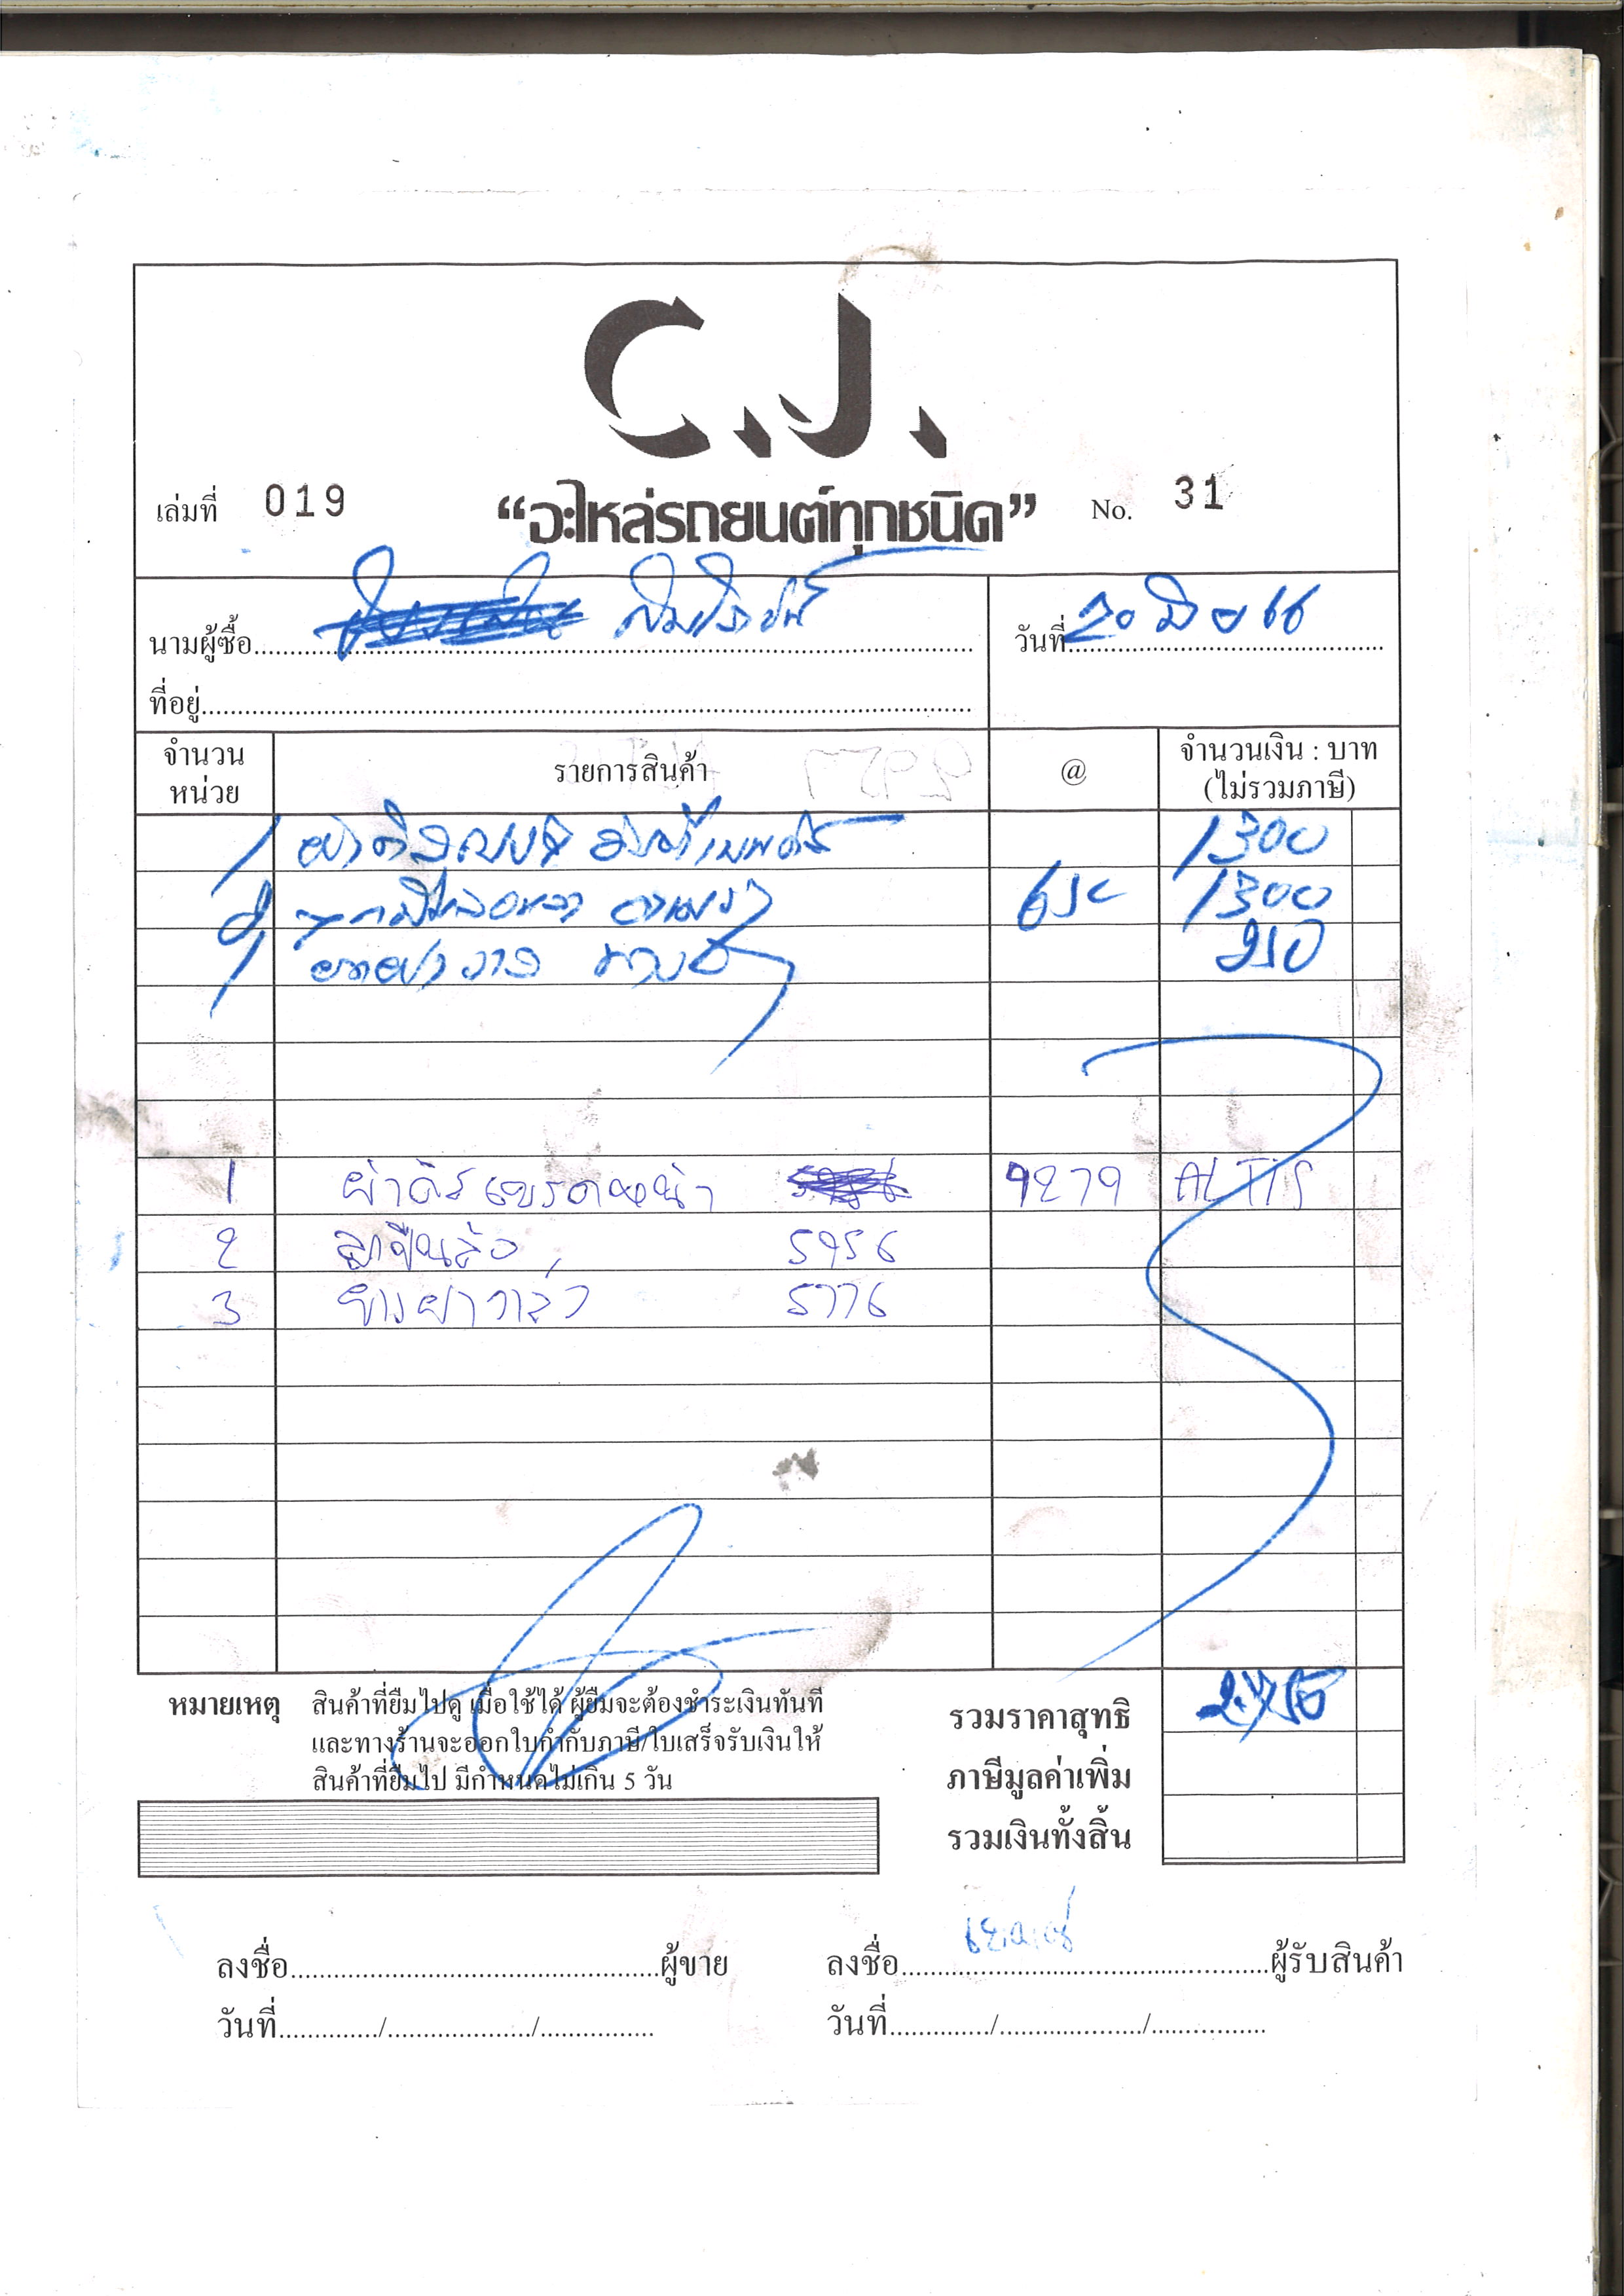 C.J.
เล่มที่ 019 “อะไหล่รถยนต์ทุกชนิด” No. 31
นามผู้ซื้อ
วันที่ 20 มิย 66
ที่อยู่
จำนวน หน่วย รายการสินค้า @ จำนวนเงิน : บาท (ไม่รวมภาษี)
1 1300
650 1300
1 210
1 ผ้าดิสเบรคหน้า 9279 ALTIS
2 ลูกปืนล้อ 5956
3 5776
หมายเหตุ สินค้าที่ยืมไปดู เมื่อใช้ได้ ผู้ยืมจะต้องชำระเงินทันที
และทางร้านจะออกใบกำกับภาษี/ใบเสร็จรับเงินให้
สินค้าที่ยืมไป มีกำหนดไม่เกิน 5 วัน
รวมราคาสุทธิ
ภาษีมูลค่าเพิ่ม
รวมเงินทั้งสิ้น
ลงชื่อ ผู้ขาย ลงชื่อ ผู้รับสินค้า
วันที่ / / วันที่ / /